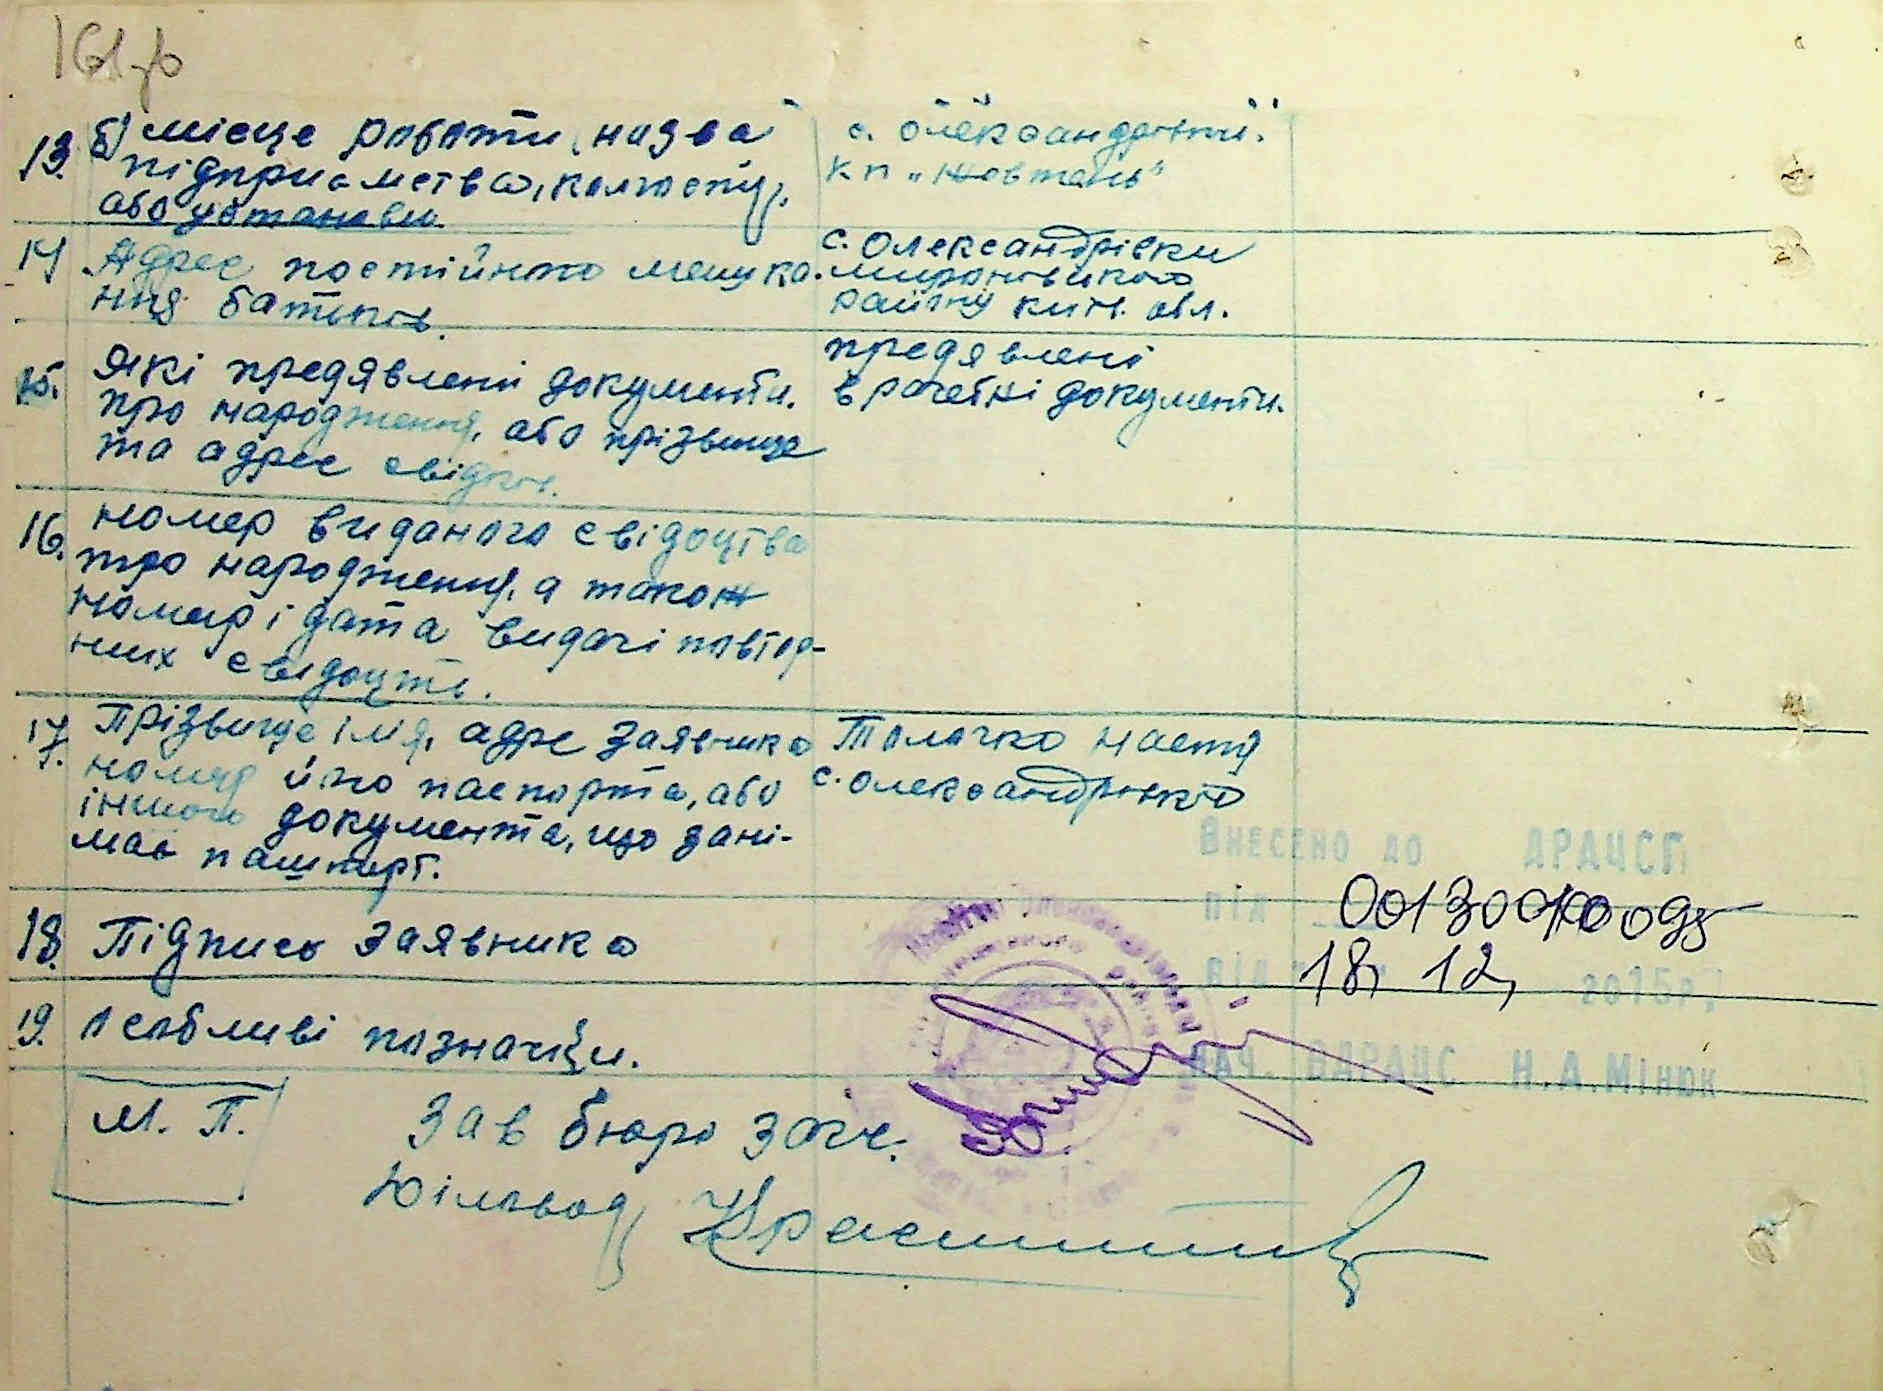 13. б) місце работи, назва
підприамства, колгоспу,
або установи.
с. Олександрівки.
кп „Жовтень"
14 Адрес постійного мешка-
ння батьків.
с. Олександрівки
миронівського
району киів. обл.
15. Які предявлені документи.
про народження, або прізвище
та адрес свідків.
предявлені
врачебні документи.
16. номер виданого свідоцтва
про народження, а також
номер і дата видачі повтор-
них свідоцтв.
17. Прізвище ім'я, адрес заявника
номер його паспорта, або
іншого документа, що зані-
має пашпорт.
Толочко настя
с. Олександрівка
18. Підпись заявника
19. особливі позначки.
М. П.
Зав бюро загс.
Діловод
Внесено до ДРАЦСГ
під
від 18, 12, 2015р.
нач. ВДРАЦС Н.А.Мінюк